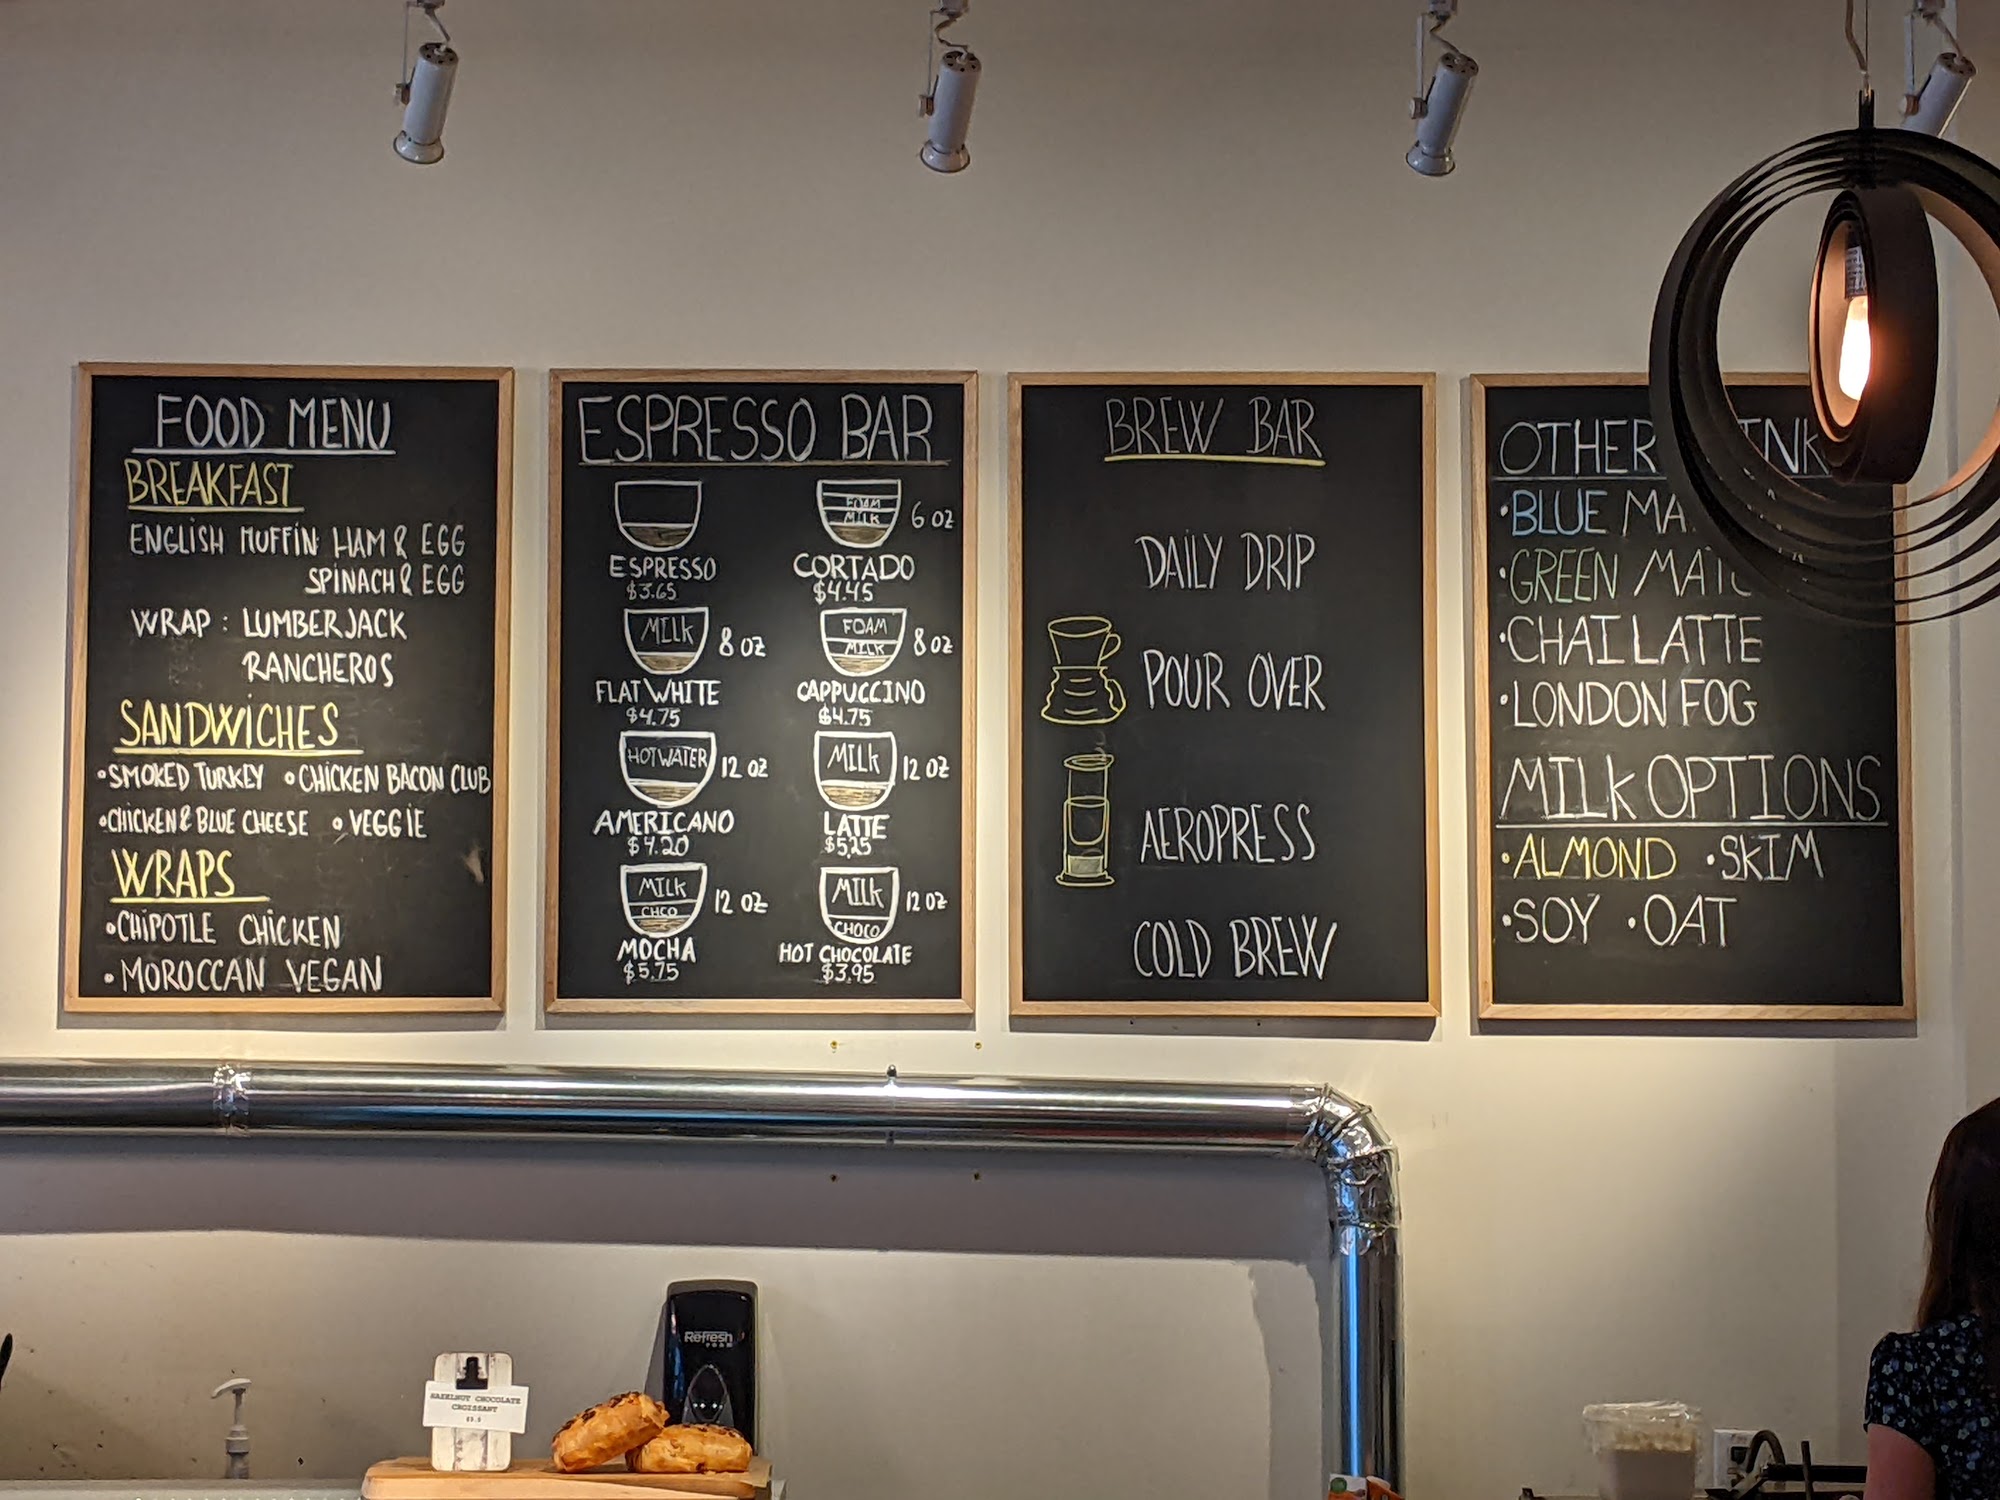 FOOD MENU
BREAKFAST
ENGLISH MUFFIN HAM & EGG
SPINACH & EGG
WRAP : LUMBERJACK
RANCHEROS
SANDWICHES
•SMOKED TURKEY •CHICKEN BACON CLUB
•CHICKEN & BLUE CHEESE •VEGGIE
WRAPS
•CHIPOTLE CHICKEN
•MOROCCAN VEGAN
ESPRESSO BAR
ESPRESSO
$3.65
FOAM
MILK
6 OZ
CORTADO
$4.45
MILK
8 OZ
FLAT WHITE
$4.75
FOAM
MILK
8 OZ
CAPPUCCINO
$4.75
HOT WATER
12 OZ
AMERICANO
$4.20
MILK
12 OZ
LATTE
$5.25
MILK
CHCO
12 OZ
MOCHA
$5.75
MILK
CHOCO
12 OZ
HOT CHOCOLATE
$3.95
BREW BAR
DAILY DRIP
POUR OVER
AEROPRESS
COLD BREW
OTHER
•BLUE
•GREEN
•CHAI LATTE
•LONDON FOG
MILK OPTIONS
•ALMOND •SKIM
•SOY •OAT
Refresh
FOAM
HAZELNUT CHOCOLATE
CROISSANT